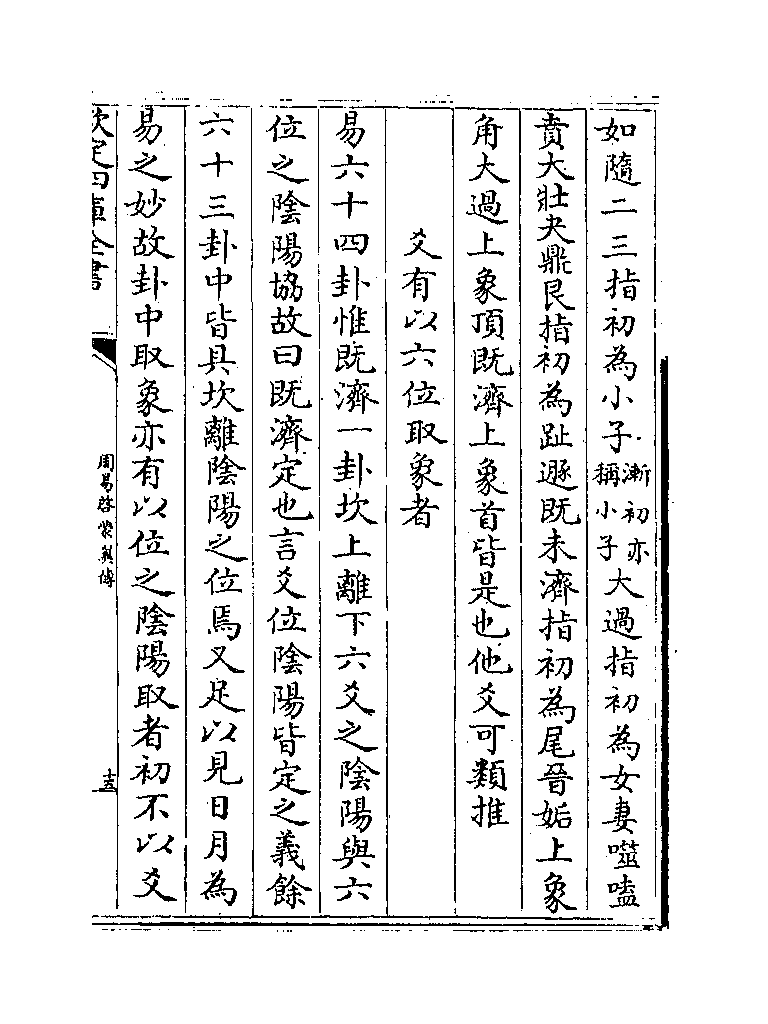 如隨二三指初為小子漸初亦稱小子大過指初為女妻噬嗑
賁大壯夬鼎艮指初為趾遯既未濟指初為尾晉姤上象
角大過上象頂既濟上象首皆是也他爻可類推
爻有以六位取象者
易六十四卦惟既濟一卦坎上離下六爻之陰陽與六
位之陰陽協故曰既濟定也言爻位陰陽皆定之義餘
六十三卦中皆具坎離陰陽之位焉又足以見日月為
易之妙故卦中取象亦有以位之陰陽取者初不以爻
欽定四庫全書
周易啓蒙翼傳
十五